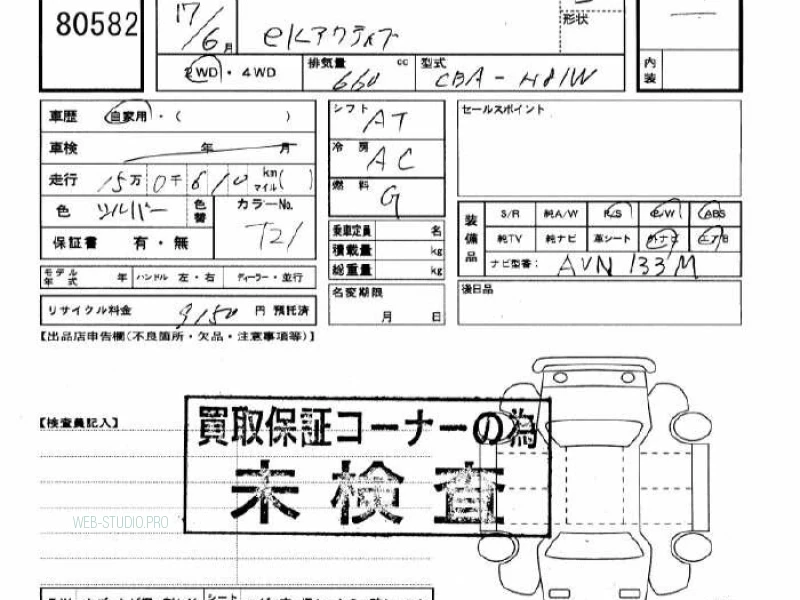 80582
17/6月
eKアクティブ
形状
内装
2WD・4WD 排気量 660 cc 型式 CBA-H81W
車歴 自家用・( )
シフト AT
セールスポイント
車検 年 月
冷房 AC
走行 15万0千610 km マイル( )
燃料 G
色 シルバー 色替 カラーNo. T21
装備品 S/R 純A/W P/S P/W ABS
純TV 純ナビ 革シート 外ナビ エアB
ナビ型番: AVN 133M
保証書 有・無
乗車定員 名
積載量 kg
総重量 kg
モデル年式 年 ハンドル 左・右 ディーラー・並行
名変期限 月 日
後日品
リサイクル料金 9150 円 預託済
【出品店申告欄(不良箇所・欠品・注意事項等)】
【検査員記入】
買取保証コーナーの為
未検査
WEB-STUDIO.PRO
シート